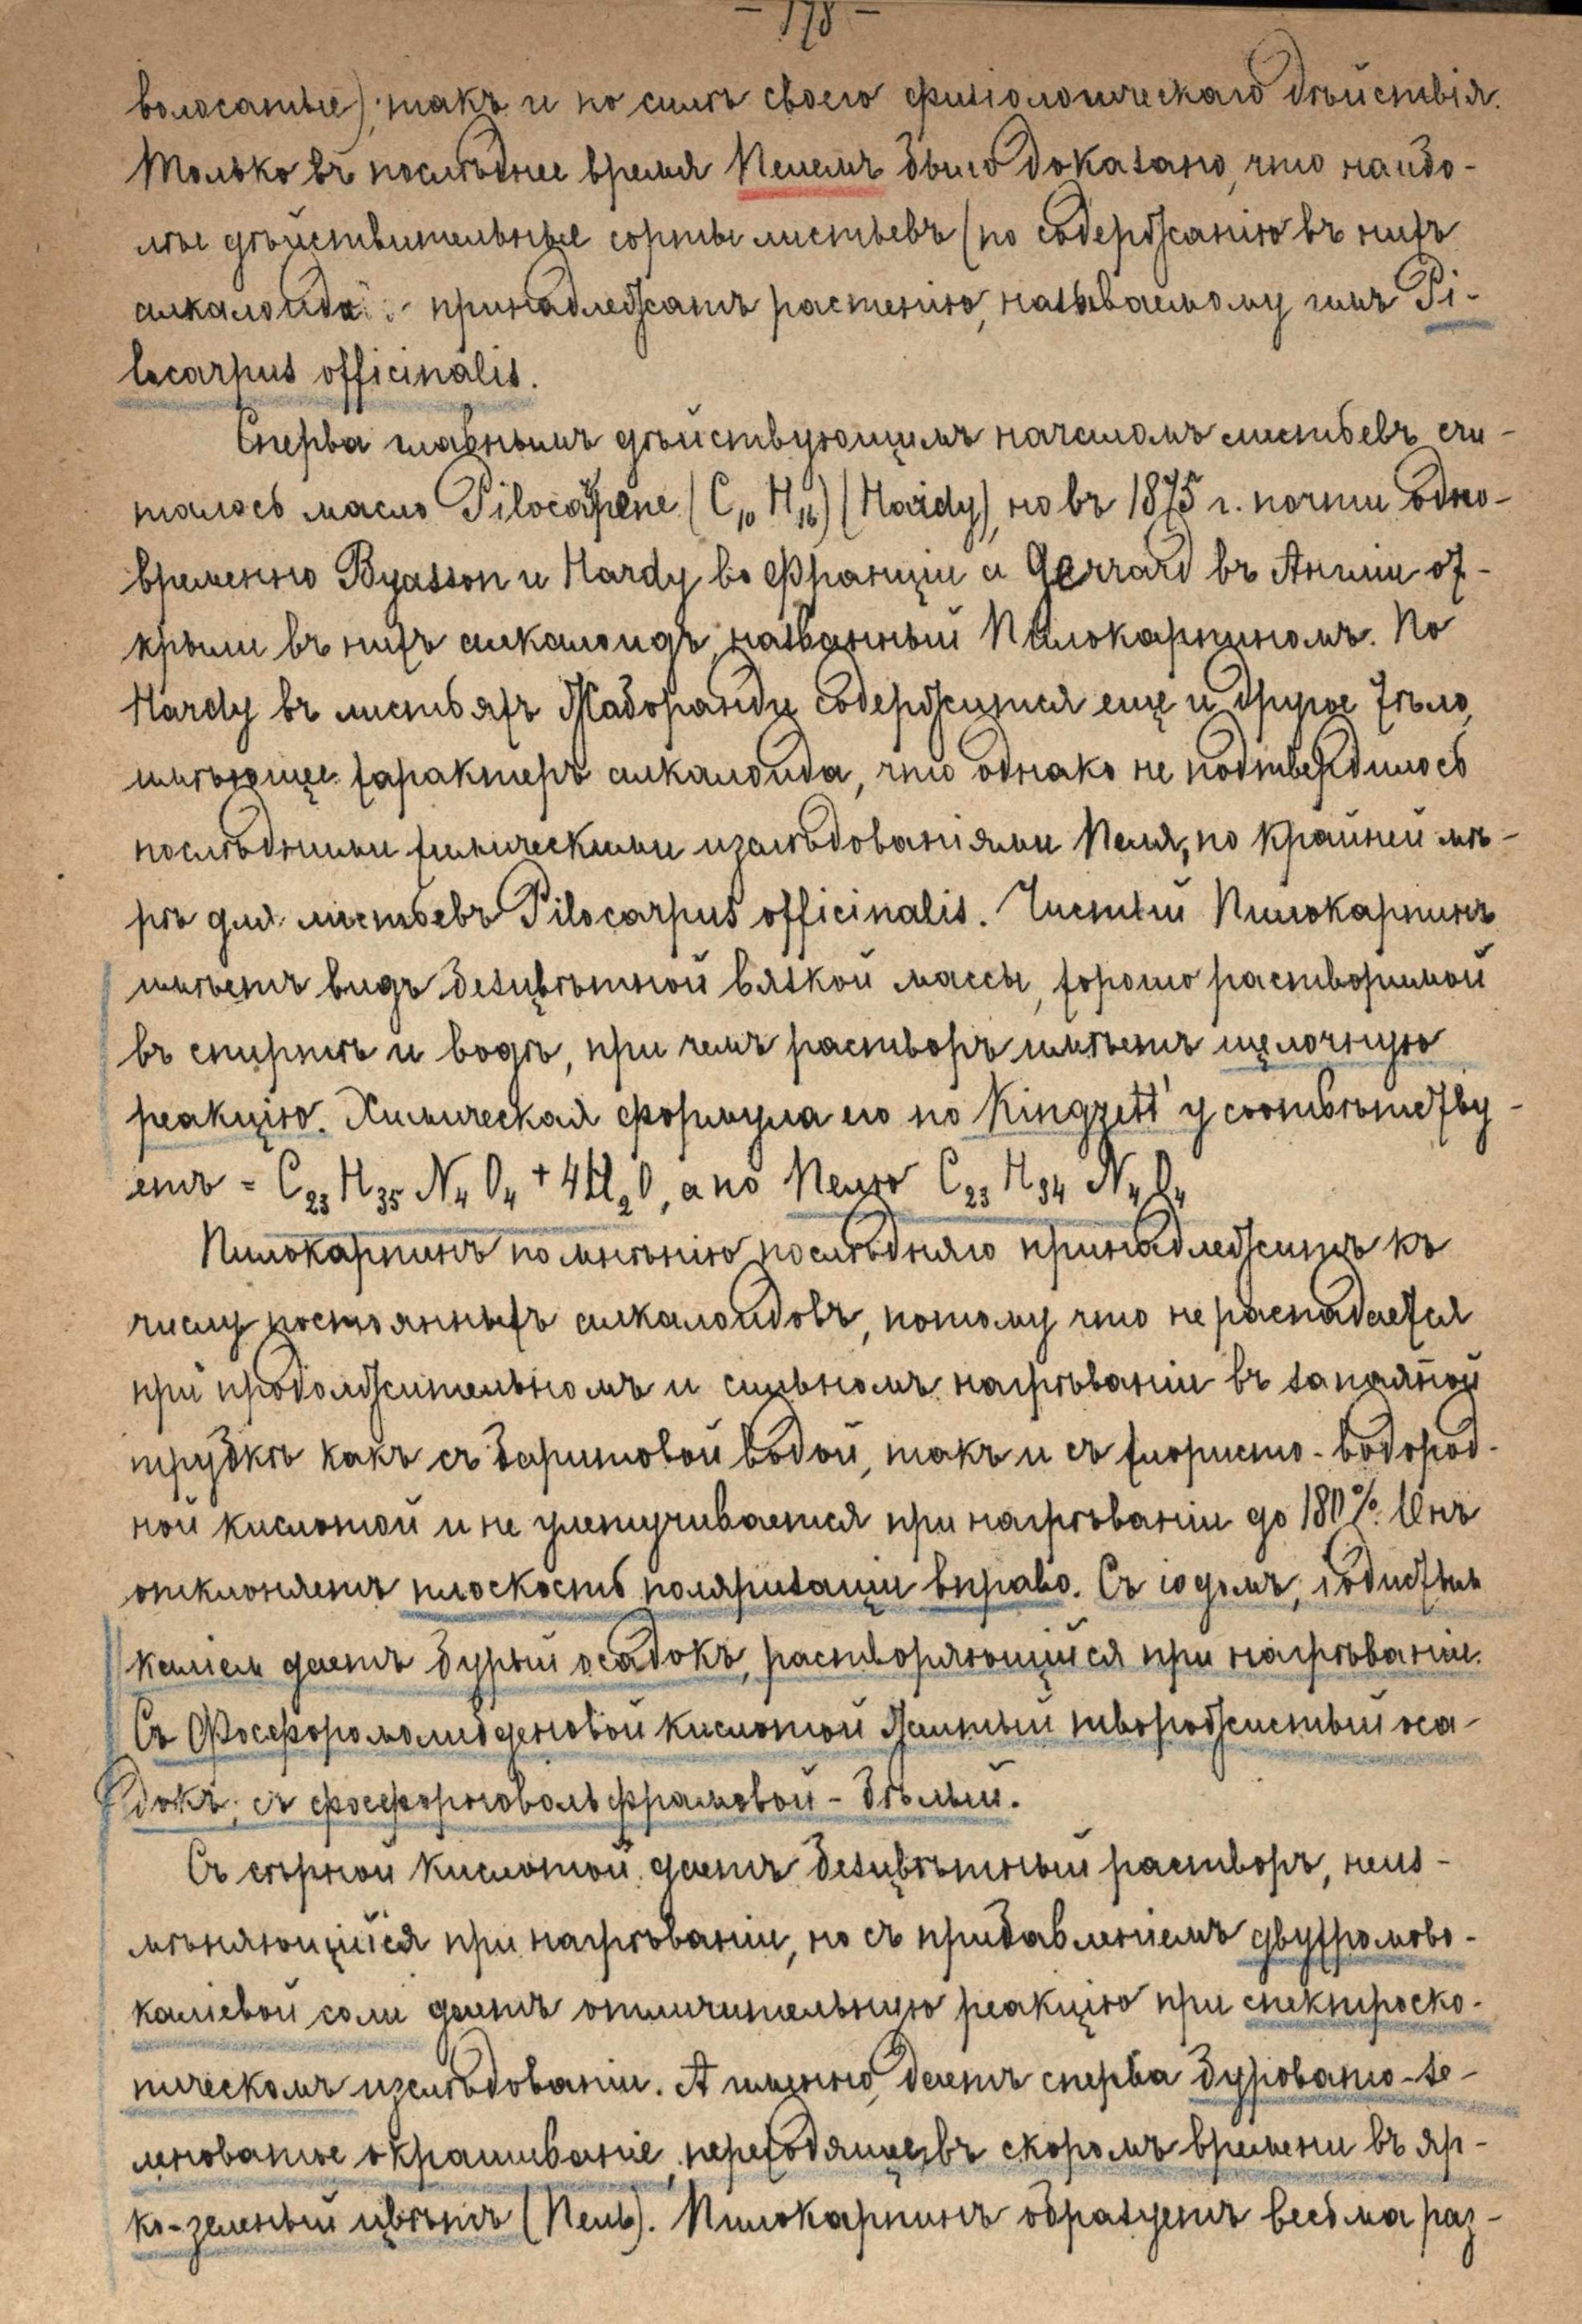 - 178 -
волосатые), такъ и по силѣ своего физіологическаго дѣйствія.
Только въ послѣднее время Пелемъ было доказано, что наибо-
лѣе дѣйствительные сорты листьевъ (по содержанію въ нихъ
алкалоида) - принадлежатъ растенію, называемому имъ Pi-
locarpus officinalis.
Сперва главнымъ дѣйствующимъ началомъ листьевъ счи-
талось масло Pilocarpene (C10 H16) (Hardy), но въ 1875 г. почти одно-
временно Byasson и Hardy во Франціи и Gerrard въ Англіи от-
крыли въ нихъ алкалоидъ, названный Пилокарпиномъ. По
Hardy въ листьяхъ Жаборанди содержится еще и другое тѣло,
имѣющее характеръ алкалоида, что однако не подтвердилось
послѣдними химическими изслѣдованіями Пеля, по крайней мѣ-
рѣ для листьевъ Pilocarpus officinalis. Чистый Пилокарпинъ
имѣетъ видъ безцвѣтной вязкой массы, хорошо растворимой
въ спиртѣ и водѣ, при чемъ растворъ имѣетъ щелочную
реакцію. Химическая формула его по Kingzett'у соотвѣтству-
етъ = C23 H35 N4 O4 + 4H2O, а по Пелю C23 H34 N4 O4
Пилокарпинъ по мнѣнію послѣдняго принадлежитъ къ
числу постоянныхъ алкалоидовъ, потому что не распадается
при продолжительномъ и сильномъ нагрѣваніи въ запаяной
трубкѣ какъ съ баритовой водой, такъ и съ хлористо-водород-
ной кислотой и не улетучивается при нагрѣваніи до 180%. Онъ
отклоняетъ плоскость поляризаціи вправо. Съ іодомъ, іодистымъ
каліем даетъ бурый осадокъ, растворяющійся при нагрѣваніи.
Съ Фосфоромолибденовой кислотой желтый творожистый оса-
докъ, съ фосфорновольфрамовой - бѣлый.
Съ сѣрной кислотой даетъ безцвѣтный растворъ, неиз-
мѣняющійся при нагрѣваніи, но съ прибавленіемъ двухромово-
каліевой соли даетъ отличительную реакцію при спектроско-
пическомъ изслѣдованіи. А именно, даетъ сперва буровато-зе-
леноватое окрашиваніе, переходящее въ скоромъ времени въ яр-
ко-зеленый цвѣтъ (Пель). Пилокарпинъ образуетъ весьма раз-